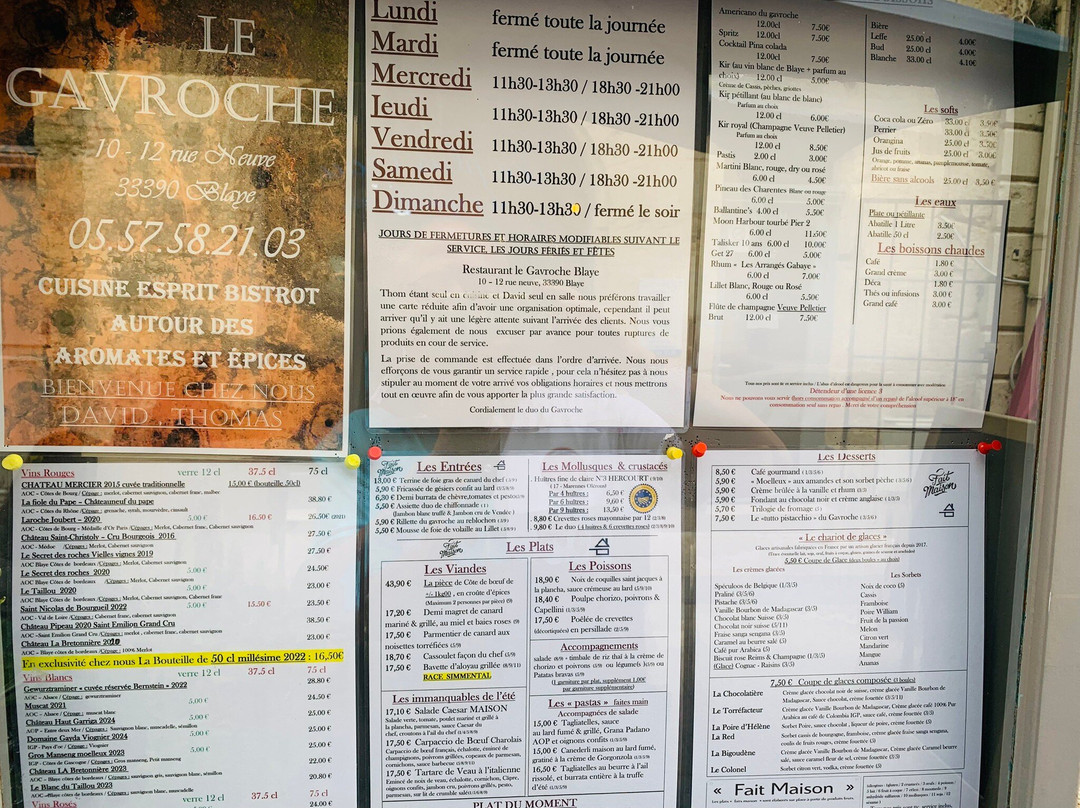 LE
GAVROCHE
10 - 12 rue Neuve
33390 Blaye
05.57.58.21.03
CUISINE ESPRIT BISTROT
AUTOUR DES
AROMATES ET ÉPICES
BIENVENUE CHEZ NOUS
DAVID, THOMAS
Lundi fermé toute la journée
Mardi fermé toute la journée
Mercredi 11h30-13h30 / 18h30 -21h00
Jeudi 11h30-13h30 / 18h30 -21h00
Vendredi 11h30-13h30 / 18h30 -21h00
Samedi 11h30-13h30 / 18h30 -21h00
Dimanche 11h30-13h30 / fermé le soir
JOURS DE FERMETURES ET HORAIRES MODIFIABLES SUIVANT LE
SERVICE, LES JOURS FÉRIÉS ET FÊTES
Restaurant le Gavroche Blaye
10 – 12 rue neuve, 33390 Blaye
Thom étant seul en cuisine et David seul en salle nous préférons travailler
une carte réduite afin d'avoir une organisation optimale, cependant il peut
arriver qu'il y ait une légère attente suivant l'arrivée des clients. Nous vous
prions également de nous excuser par avance pour toutes ruptures de
produits en cour de service.
La prise de commande est effectuée dans l'ordre d'arrivée. Nous nous
efforçons de vous garantir un service rapide , pour cela n'hésitez pas à nous
stipuler au moment de votre arrivé vos obligations horaires et nous mettrons
tout en œuvre afin de vous apporter la plus grande satisfaction.
Cordialement le duo du Gavroche
Americano du gavroche
12.00cl 7.50€
Spritz 12.00cl 7.50€
Cocktail Pina colada
12.00cl 7.50€
Kir (au vin blanc de Blaye + parfum au
choix) 12.00 cl 5.00€
Crème de Cassis, pêches, griottes
Kir pétillant (au blanc de blanc)
Parfum au choix
12.00 cl 6.00€
Kir royal (Champagne Veuve Pelletier)
Parfum au choix
12.00 cl 8.50€
Pastis 2.00 cl 3.00€
Martini Blanc, rouge, dry ou rosé
6.00 cl 4.50€
Pineau des Charentes Blanc ou rouge
6.00 cl 5.00€
Ballantine's 4.00 cl 5.50€
Moon Harbour tourbé Pier 2
6.00 cl 11.50€
Talisker 10 ans 6.00 cl 10.00€
Get 27 6.00 cl 5.00€
Rhum « Les Arrangés Gabaye »
6.00 cl 7.00€
Lillet Blanc, Rouge ou Rosé
6.00 cl 5.50€
Flûte de champagne Veuve Pelletier
Brut 12.00 cl 7.50€
Bière
Leffe 25.00 cl 4.00€
Bud 25.00 cl 4.00€
Blanche 33.00 cl 4.10€
Les softs
Coca cola ou Zéro 33.00 cl 3.50€
Perrier 33.00 cl 3.50€
Orangina 25.00 cl 3.50€
Jus de fruits 25.00 cl 3.00€
Orange, pomme, ananas, pamplemousse, tomate,
abricot ou fraise
Bière sans alcools 25.00 cl 3.50 €
Les eaux
Plate ou pétillante
Abatille 1 Litre 3.50€
Abatille 50 cl 2.50€
Les boissons chaudes
Café 1.80 €
Grand crème 3.00 €
Déca 1.80 €
Thés ou infusions 3.00 €
Grand café 3.00€
Détendeur d'une licence 3
Vins Rouges verre 12 cl 37.5 cl 75 cl
CHATEAU MERCIER 2015 cuvée traditionnelle 15,00 € (bouteille 50cl)
AOC – Côtes de Bourg / Cépages : merlot, cabernet sauvignon, cabernet franc, malbec
La fiole du Pape – Châteauneuf du pape 38.80 €
AOC – Côtes du Rhône /Cépages : grenache, syrah, mourvèdre, cinsault
Laroche Joubert – 2020 5.00 € 16.50 € 26.50€
AOC – Côtes de Bourg - Médaille d'Or Paris /Cépages : Merlot, Cabernet franc, Cabernet sauvignon
Château Saint-Christoly – Cru Bourgeois 2016 27.50 €
AOC - Médoc /Cépages : Merlot, Cabernet sauvignon
Le Secret des roches Vielles vignes 2019 27.50 €
AOC Blaye Côtes de bordeaux /Cépages : Merlot, Cabernet sauvignon
Le Secret des roches 2020 5.00 € 24.50€
AOC Blaye Côtes de bordeaux /Cépages : Merlot, Cabernet sauvignon
Le Taillou 2020 5.00 € 23.00 €
AOC Blaye Côtes de bordeaux /Cépages : Merlot, Cabernet sauvignon, Cabernet franc
Saint Nicolas de Bourgueil 2022 5.00 € 15.50 € 23.50 €
AOC - Val de Loire / Cépages : Cabernet franc, cabernet sauvignon
Château Pipeau 2020 Saint Emilion Grand Cru 38.50 €
AOC –Saint Emilion Grand Cru /Cépages : merlot , cabernet franc, cabernet sauvignon
Château La Bretonnière 2020 23.00 €
AOC – Blaye côtes de bordeaux /Cépages : 100% Merlot
En exclusivité chez nous La Bouteille de 50 cl millésime 2022 : 16,50€
Vins Blancs verre 12 cl 37.5 cl 75 cl
Gewurztraminer « cuvée réservée Bernstein » 2022 28.80 €
AOC – Alsace / Cépage : gewurztraminer
Muscat 2021 5,00 € 24.50 €
AOC – Alsace / Cépage : muscat blanc
Château Haut Garriga 2024 5.00 € 25.00 €
AOP – Entre deux Mer / Cépages : Sauvignon blanc, muscadelle, sémillon
Domaine Gayda Viognier 2024 5.00 € 25.00 €
IGP – Pays d'oc / Cépage : Viognier
Gros Manseng moelleux 2023 5.00 € 25.00 €
IGP – Côtes de Gascogne / Cépages : Gros manseng, Petit manseng
Château LA Bretonnière 2023 22.00 €
AOC – Blaye côtes de bordeaux / Cépages : sauvignon gris, sauvignon blanc, sémillon
Le Blanc du Taillou 2023 20.80 €
Vins Rosés verre 12 cl 37.5 cl 75 cl
24.00 €
Fait Maison
Les Entrées
13,00 € Terrine de foie gras de canard du chef
5,90 € Fricassée de gésiers confit au lard
6,30 € Demi burrata de chèvre,tomates et pestou
5,50 € Assiette duo de chiffonnade
(Jambon blanc truffé & Jambon cru de Vendée)
5,90 € Rillette du gavroche au reblochon
5,50 € Mousse de foie de volaille au Lillet
Les Mollusques & crustacés
Huîtres fine de claire N°3 HERCOURT
( 17 - Marennes Oléron)
Par 4 huîtres : 6,50 €
Par 6 huîtres : 9,60 €
Par 9 huîtres : 13,50 €
8,80 € Crevettes roses mayonnaise par 12
9,80 € Le duo ( 4 huîtres & 6 crevettes roses)
Fait Maison
Les Plats
Les Viandes
48,90 € La pièce de Côte de bœuf de
+/- 1kg00 , en croûte d'épices
(Maximum 2 personnes par pièce) (9)
17,20 € Demi magret de canard
mariné & grillé, au miel et baies roses (9)
17,50 € Parmentier de canard aux
noisettes torréfiées (5/9)
18,70 € Cassoulet façon du chef (5/9)
17,50 € Bavette d'aloyau grillée (8/9/11)
RACE SIMMENTAL
Les Poissons
18,90 € Noix de coquilles saint jacques à
la plancha, sauce crémeuse au lard
18,40 € Poulpe chorizo, poivrons &
Capellini
17,50 € Poêlée de crevettes
(décortiquées) en persillade (2/5/9)
Accompagnements
salade (8/9) - timbale de riz thaï à la crème de
chorizo et poivrons (5/9) ou légumes(5/9) ou
Patatas bravas (5/9)
(1 garniture par plat, supplément 1.00€
par garniture supplémentaire)
Les immanquables de l'été
17,10 € Salade Caesar MAISON
Salade verte, tomate, poulet mariné et grillé à
la plancha, parmesan, sauce Caesar du
chef, croutons à l'ail du chef
17,50 € Carpaccio de Bœuf Charolais
Carpaccio de bœuf français, échalote, émincé de
champignons, poivrons grillés, copeaux de parmesan,
cornichons, sauce barbecue
17,50 € Tartare de Veau à l'italienne
Emincé de noix de veau, échalote, cornichon, câpre,
oignons confits, jambon cru, poivrons grillés, pesto,
parmesan, sur lit de crumble salé
Les « pastas » faites main
Accompagnées de salade
15,00 € Tagliatelles, sauce
au lard fumé & grillé, Grana Padano
AOP et oignons confits
15,00 € Canederli maison au lard fumé,
gratiné à la crème de Gorgonzola
16,50 € Tagliatelles au beurre à l'ail
rissolé, et burrata entière à la truffe
d'été
PLAT DU MOMENT
Les Desserts
8,50 € Café gourmand
5,90 € « Moelleux » aux amandes et son sorbet pêche
5,90 € Crème brûlée à la vanille et rhum
5,90 € Fondant au chocolat noir et crème anglaise
5,70 € Trilogie de fromage
7,50 € Le «tutto pistacchio » du Gavroche
Fait Maison
« Le chariot de glaces »
Glaces artisanales fabriquées en France par un artisan glacier français depuis 2017.
5,50 € Coupe de Glace (deux boules - au choix)
Les crèmes glacées
Spéculoos de Belgique (1/3/5)
Praliné (3/5/6)
Pistache (3/5/6)
Vanille Bourbon de Madagascar (3/5)
Chocolat blanc Suisse (3/5)
Chocolat noir suisse (5/11)
Fraise sanga sengana (3/5)
Caramel au beurre salé (3)
Café pur Arabica (5)
Biscuit rose Reims & Champagne (1/3/5)
(Glace) Cognac - Raisins (3/5)
Les Sorbets
Noix de coco (5)
Cassis
Framboise
Poire William
Fruit de la passion
Melon
Citron vert
Mandarine
Mangue
Ananas
7,50 € Coupe de glaces composée (3 boules)
La Chocolatière Crème glacée chocolat noir de suisse, crème glacée Vanille Bourbon de
Madagascar, Sauce chocolat, crème fouettée (3/5/11)
Le Torréfacteur Crème glacée Vanille Bourbon de Madagascar, Crème glacée café 100% Pur
Arabica au café de Colombia IGP, sauce café, crème fouettée (3/5)
La Poire d'Hélène Sorbet Poire, sauce chocolat , liqueur de poire, crème fouettée (3)
La Red Sorbet cassis de bourgogne, framboise, crème glacée fraise sanga sengana,
coulis de fruits rouges, crème fouettée (3)
La Bigoudène Crème glacée Vanille Bourbon de Madagascar, Crème glacée Caramel beurre
salé, sauce caramel fleur de sel, crème fouettée (3)
Le Colonel Sorbet citron vert, vodka, crème fouettée (3)
« Fait Maison »